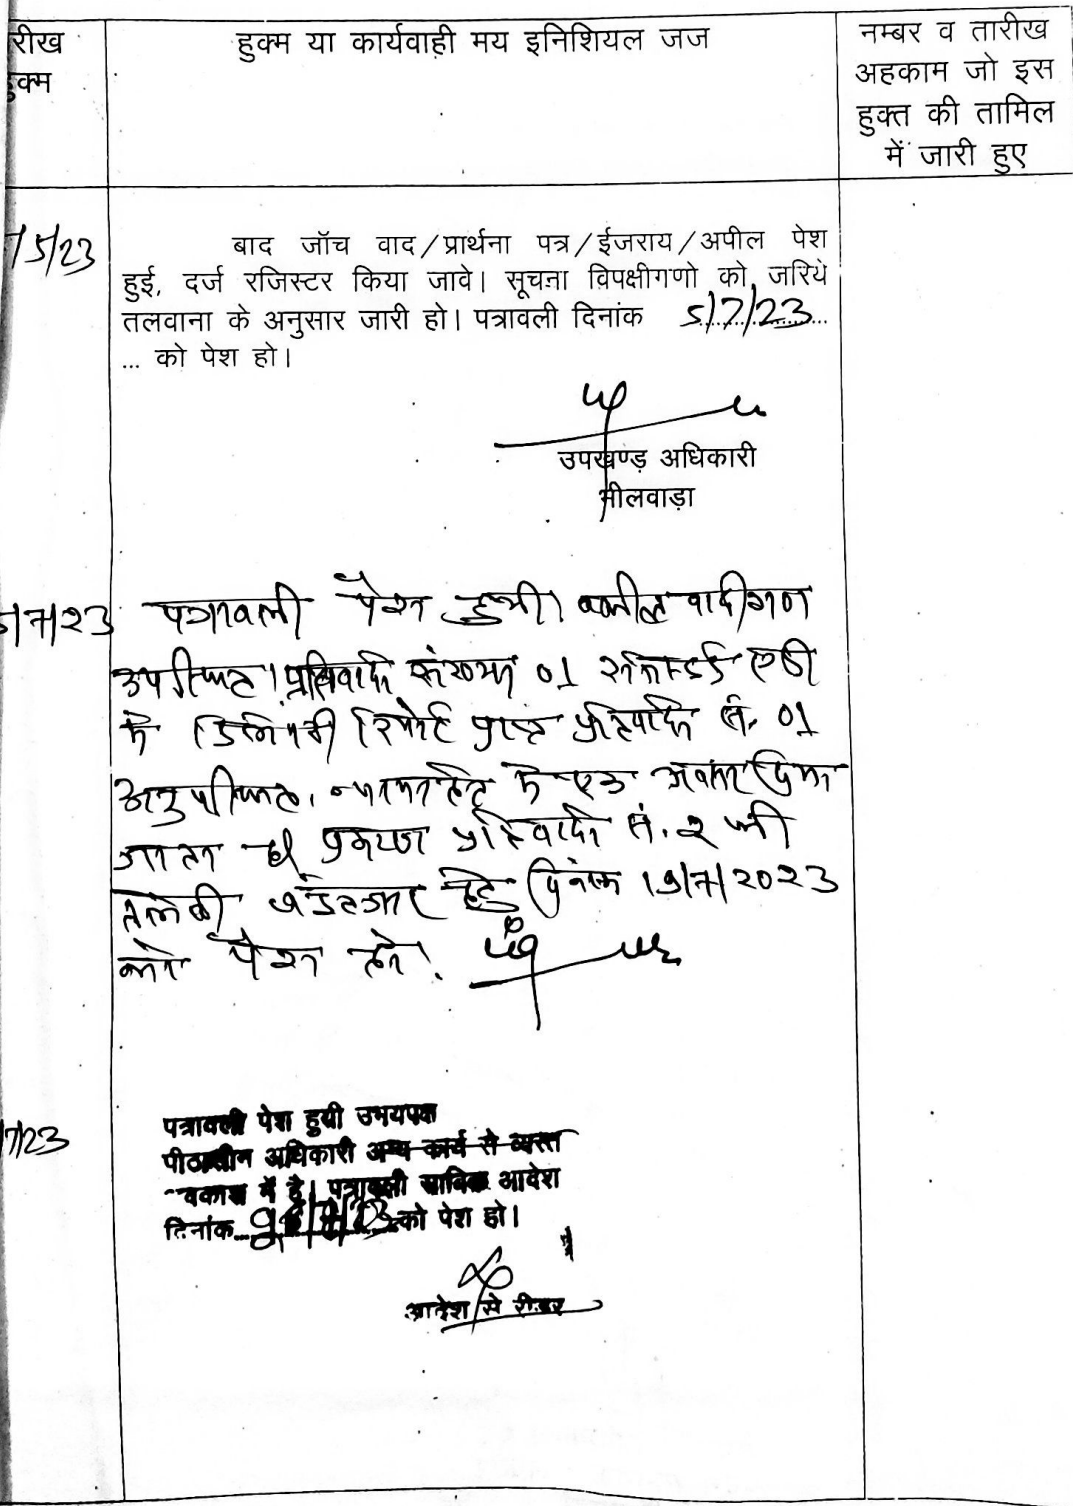 रीख
हुक्म
हुक्म या कार्यवाही मय इनिशियल जज
नम्बर व तारीख
अहकाम जो इस
हुक्त की तामिल
में जारी हुए
/5/23
बाद जॉच वाद/प्रार्थना पत्र/ईजराय/अपील पेश
हुई, दर्ज रजिस्टर किया जावे। सूचना विपक्षीगणो को जरिये
तलवाना के अनुसार जारी हो। पत्रावली दिनांक 5/7/23
... को पेश हो।
उपखण्ड़ अधिकारी
भीलवाड़ा
5/7/23
पत्रावली पेश हुयी। वकील वादीगण
उपस्थित। प्रतिवादी संख्या 01 रजिस्टर्ड एडी
के डिलेवरी रिपोर्ट प्राप्त प्रतिवादी सं. 01
अनुपस्थित। एक अवसर दिया
जाता है प्रकरण प्रतिवादी सं. 2 की
तलबी हेतु दिनांक 19/7/2023
को पेश हो।
7/23
पत्रावली पेश हुयी उभयपक्ष
पीठासीन अधिकारी अन्य कार्य से व्यस्त
वकाश में है। पत्रावली साबिक आदेश
दिनांक को पेश हो।
आदेश से रीडर